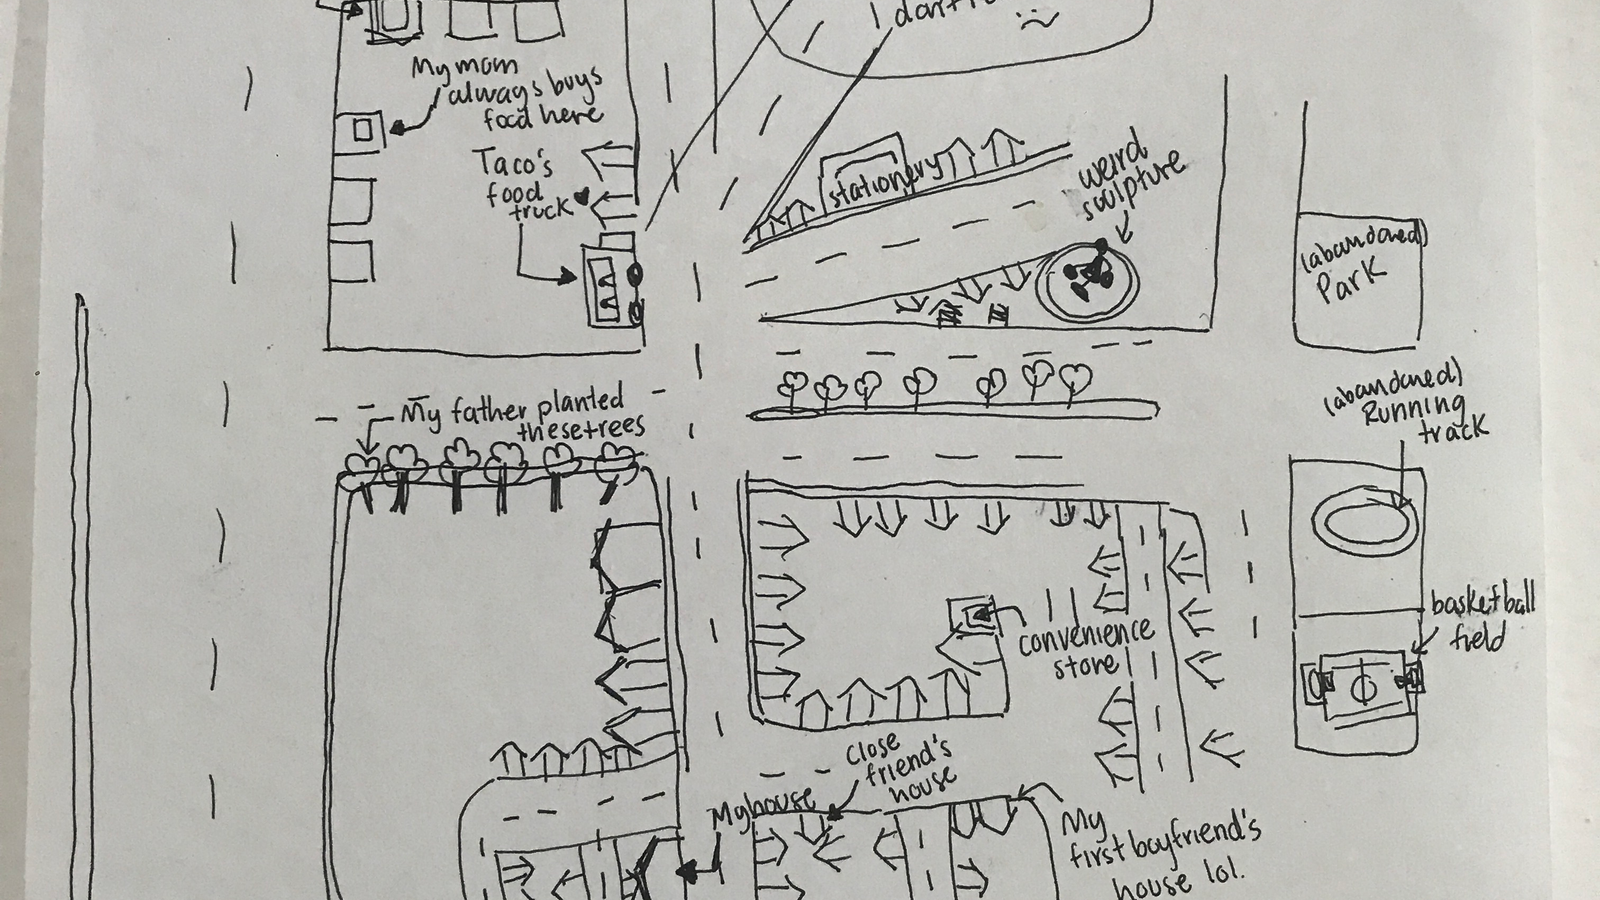 I don't
My mom
always buys
food here
Taco's
food
truck
stationery
weird
sculpture
(abandoned)
Park
My father planted
these trees
(abandoned)
Running
track
basketball
field
convenience
store
Close
friend's
house
My house
My
first boyfriend's
house lol.